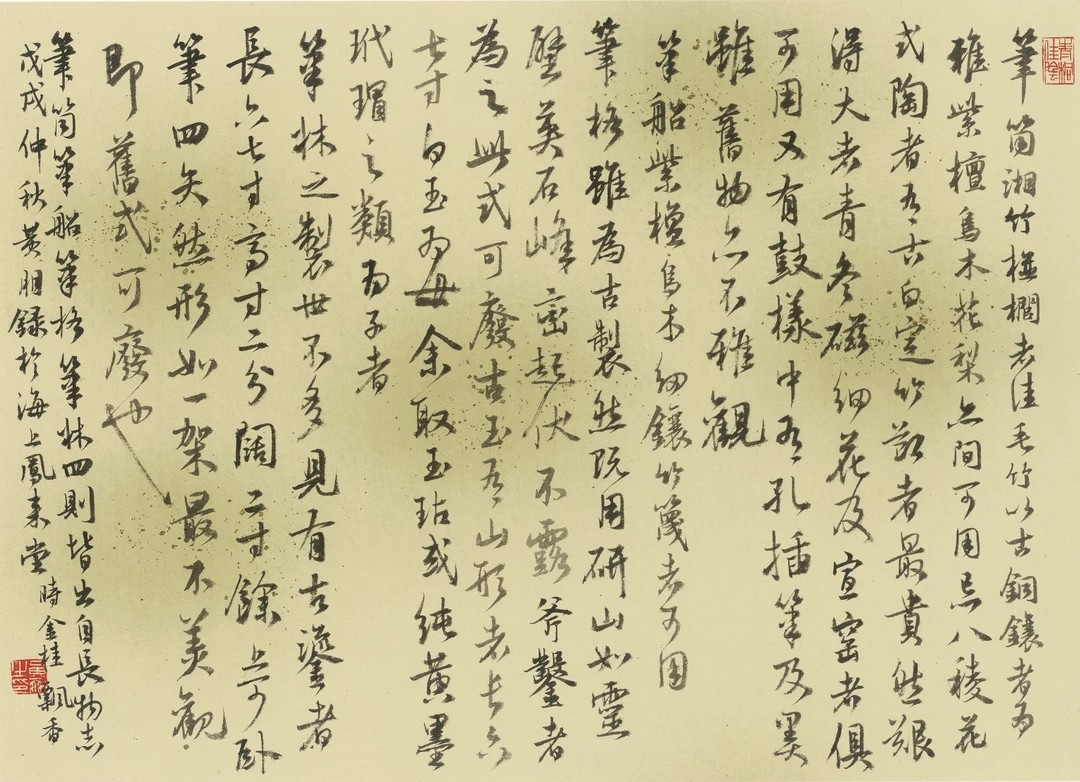 筆筒湘竹栟櫚者佳毛竹以古銅鑲者為
雅紫檀烏木花梨亦間可用忌八稜花
式陶者有古白定竹節者最貴然艱
得大者青冬磁細花及宣窑者俱
可用又有鼓樣中有孔插筆及墨
雖舊物亦不雅觀
筆船紫檀烏木細鑲竹篾者可用
筆格雖為古製然既用研山如靈
壁英石峰巒起伏不露斧鑿者
為之此式可廢古玉有山形者長六
七寸白玉為母余取玉玷或純黃墨
玳瑁之類為子者
筆牀之製世不多見有古鎏者
長六七寸高寸二分闊二寸餘上可臥
筆四矢然形如一架最不美觀
即舊式可廢也
筆筒筆船筆格筆牀四則皆出自長物志
戊戌仲秋黃胭錄於海上鳳來堂時金桂飄香